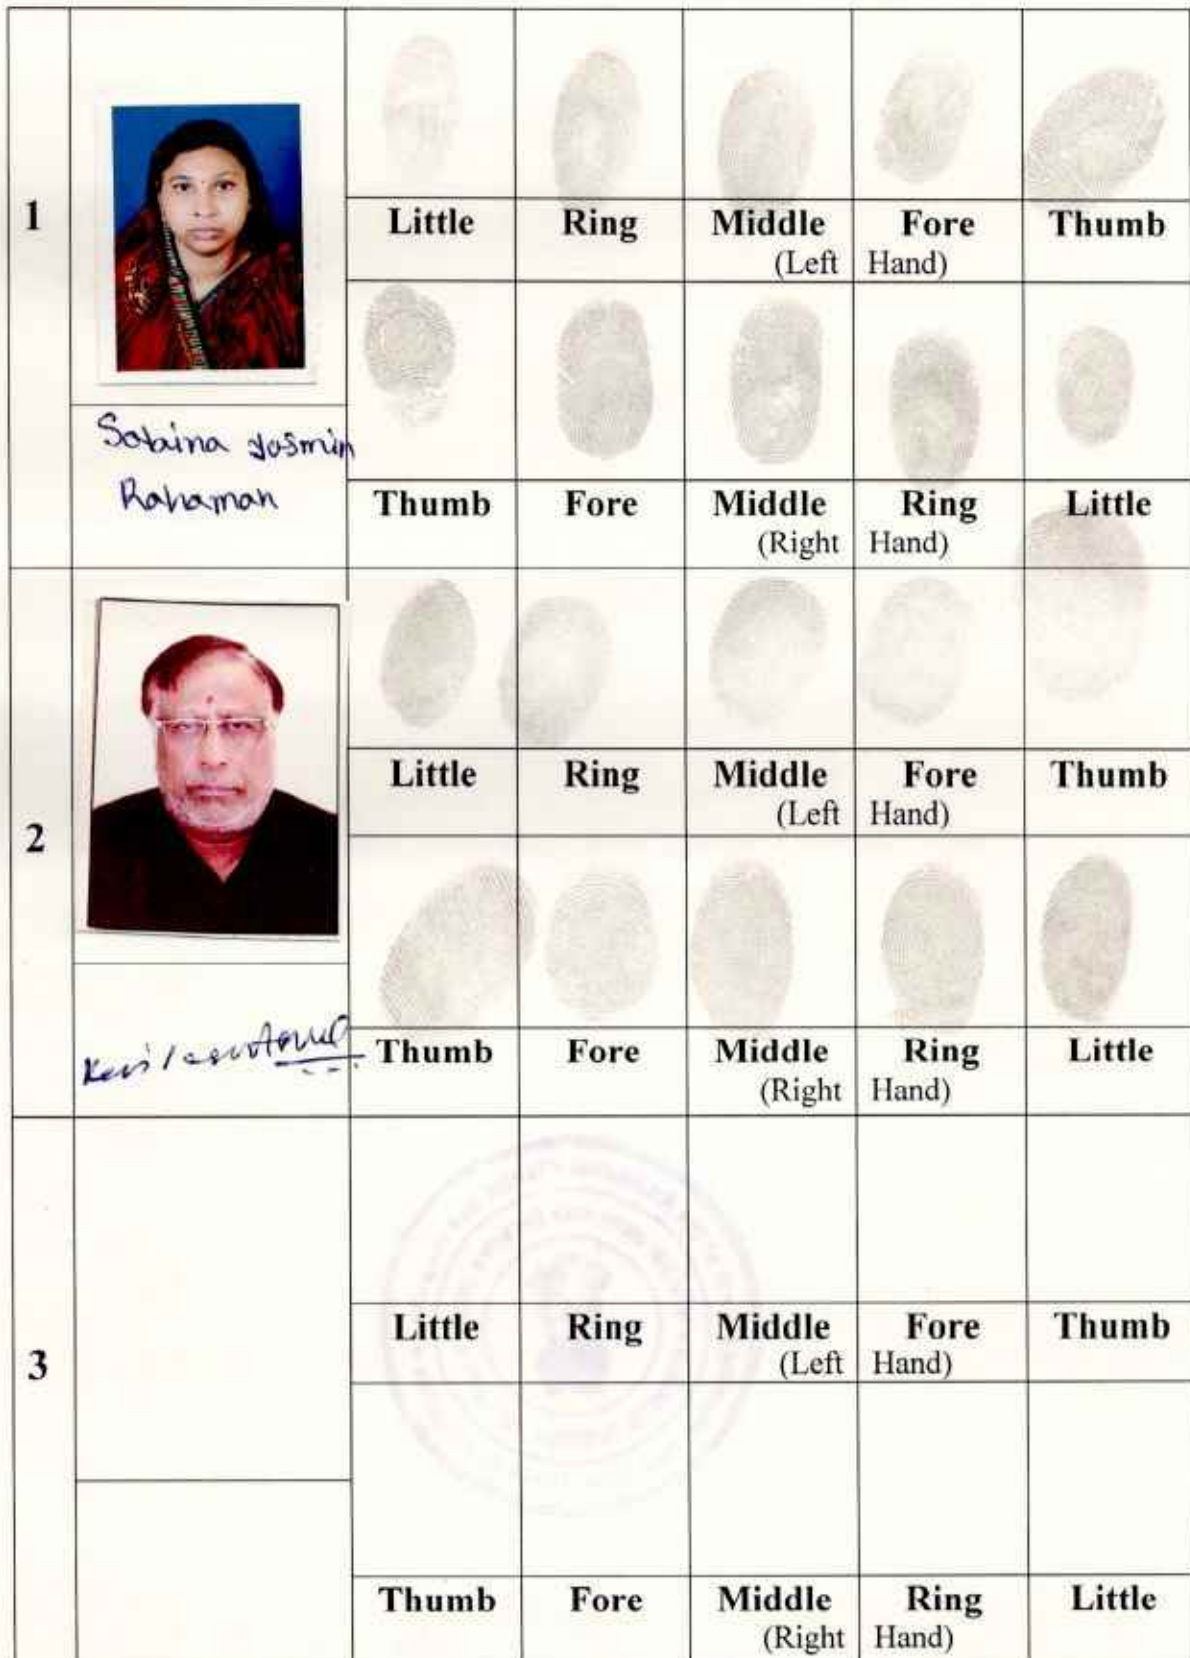 1
Little Ring Middle Fore Thumb
(Left Hand)
Sabina Yasmin
Rahaman
Thumb Fore Middle Ring Little
(Right Hand)
2
Little Ring Middle Fore Thumb
(Left Hand)
Thumb Fore Middle Ring Little
(Right Hand)
3
Little Ring Middle Fore Thumb
(Left Hand)
Thumb Fore Middle Ring Little
(Right Hand)